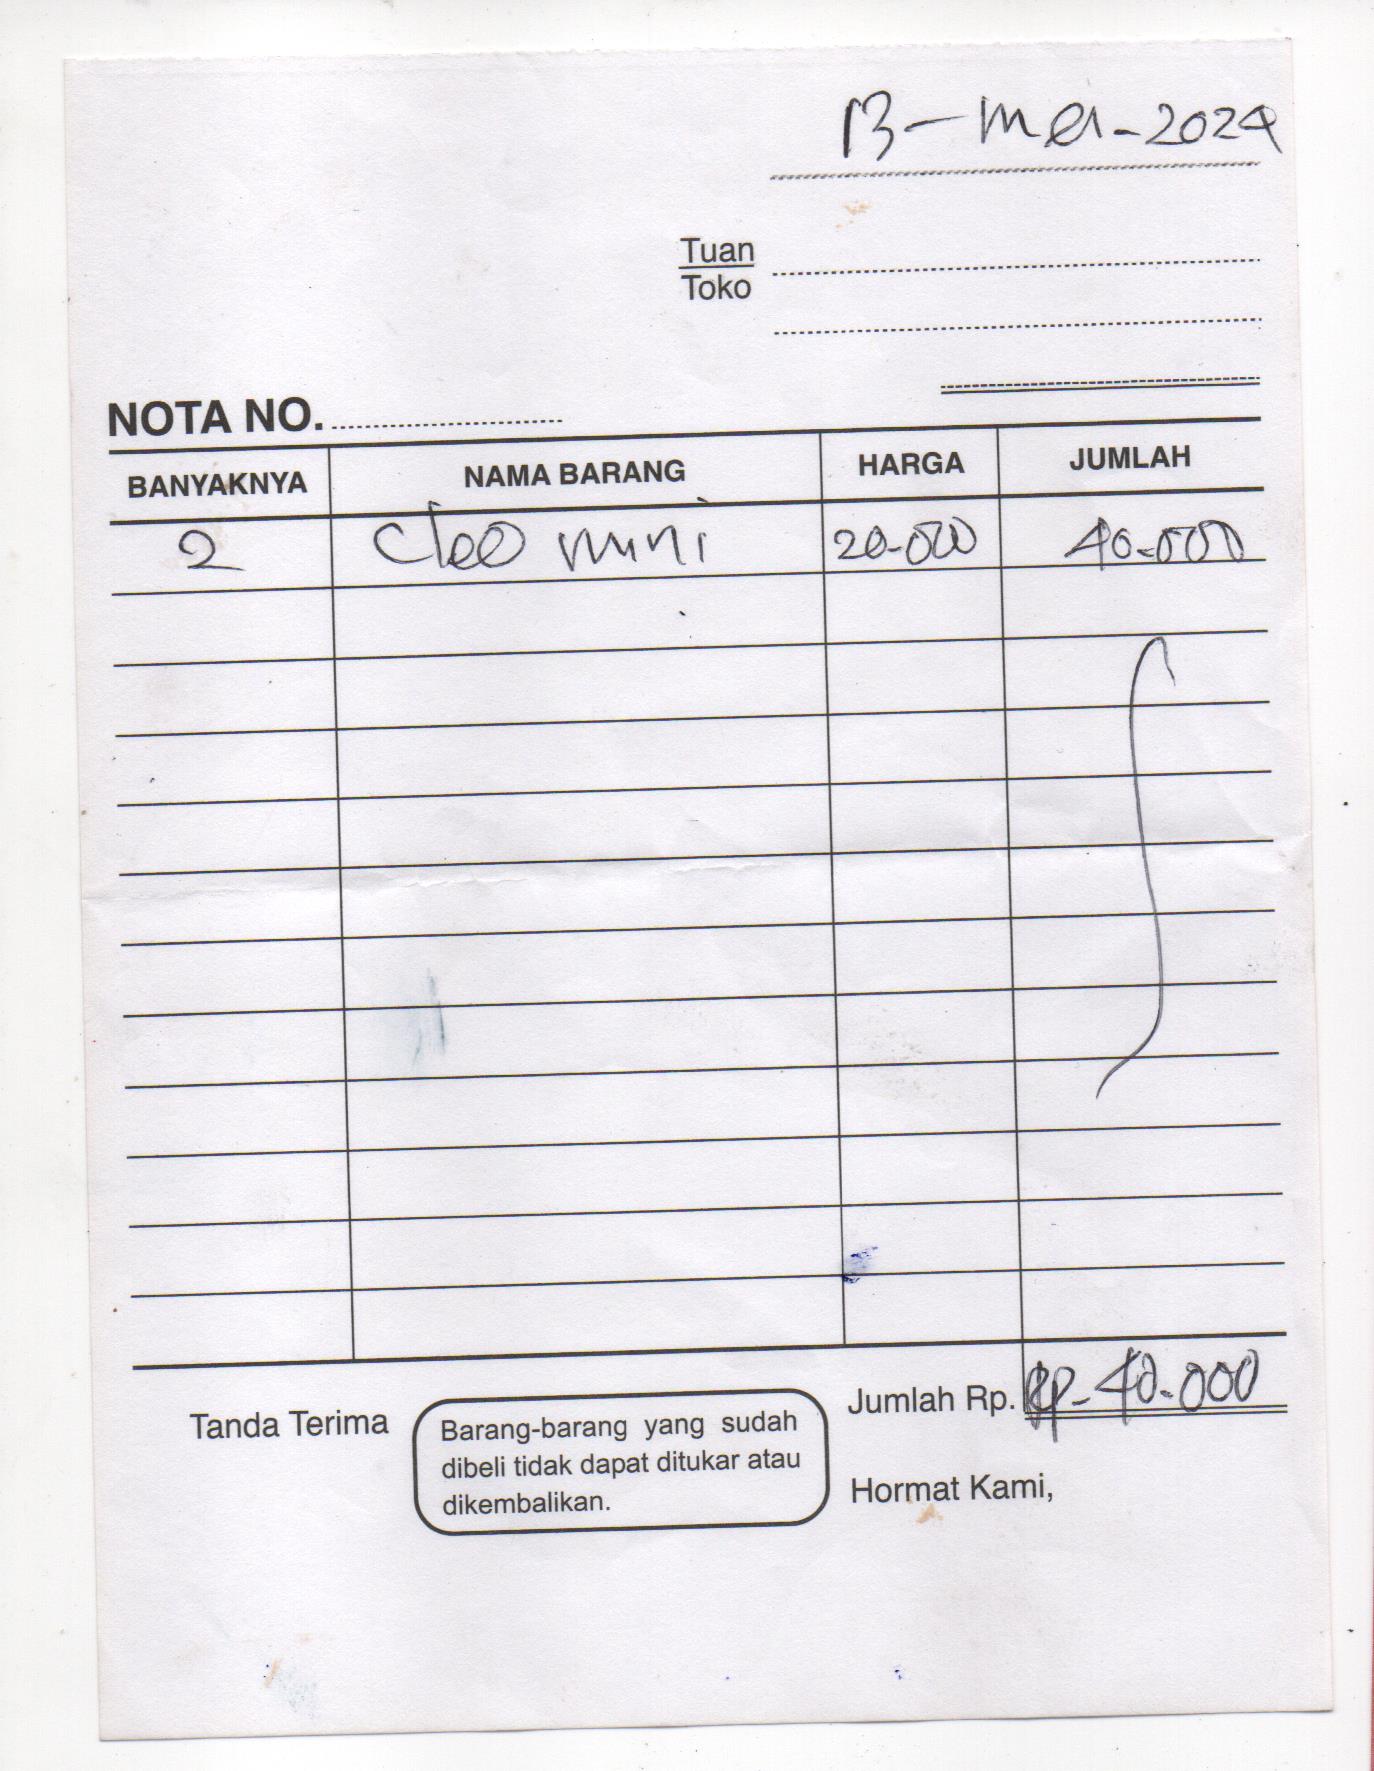 13-Mei-2024
Tuan
Toko
NOTA NO.
BANYAKNYA NAMA BARANG HARGA JUMLAH
2 cleo mini 20.000 40.000
Jumlah Rp. Rp. 40.000
Tanda Terima
Barang-barang yang sudah
dibeli tidak dapat ditukar atau
dikembalikan.
Hormat Kami,